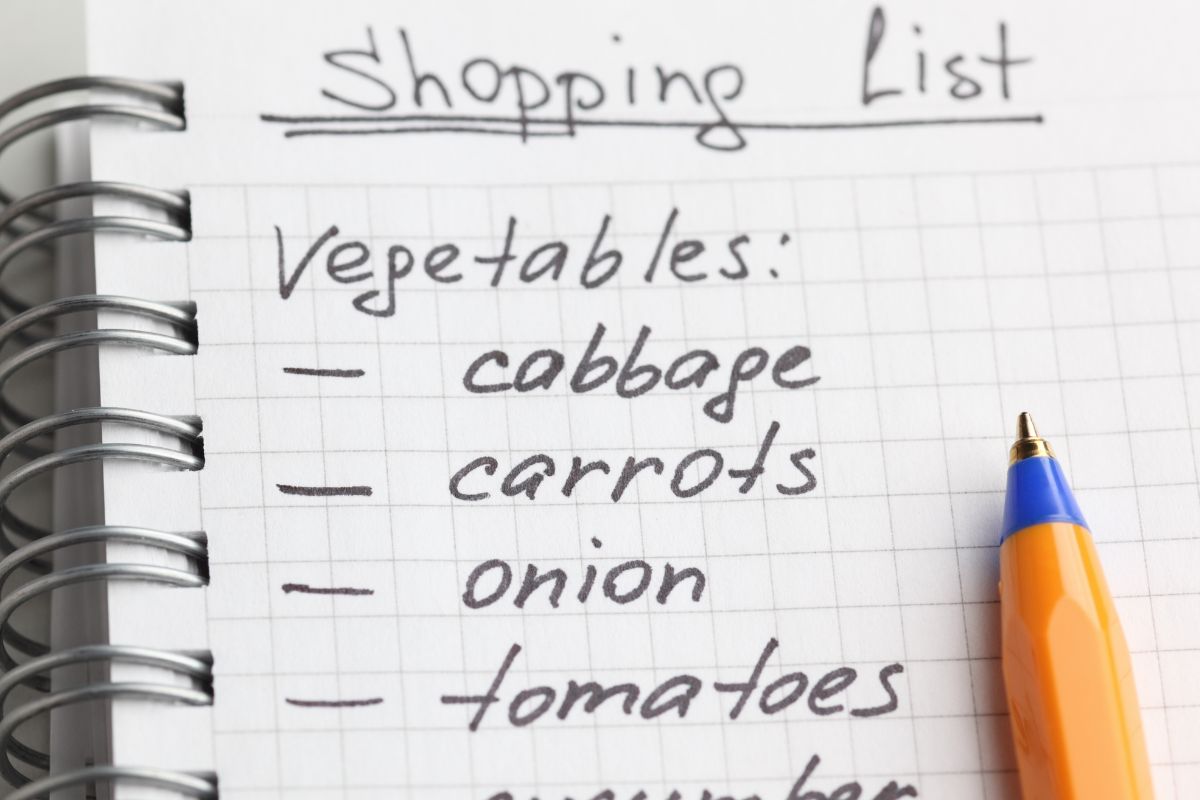 Shopping List
Vegetables:
— cabbage
— carrots
— onion
— tomatoes